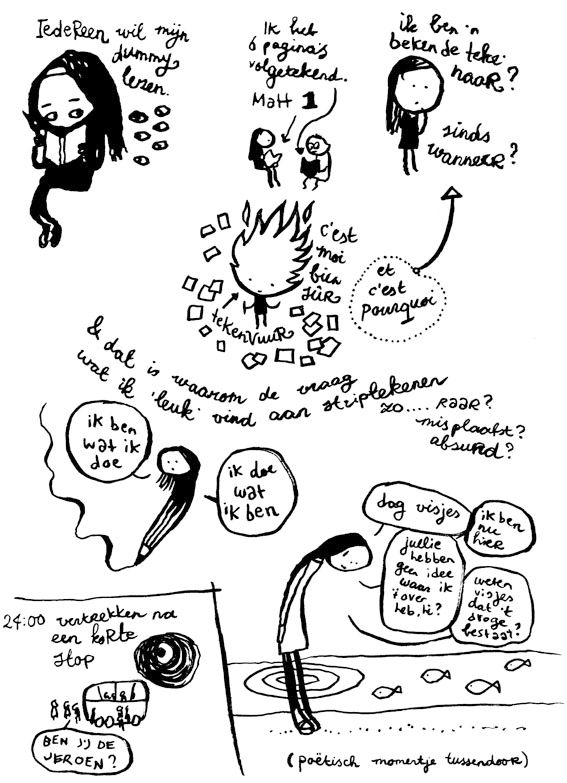 Iedereen wil mijn
dummy
lezen.
Ik heb
6 pagina's
volgetekend.
Matt 1
ik ben 'n
bekende teke-
naar?
sinds
wanneer?
c'est
moi
bien
sûr
tekenvuur
et
c'est
pourquoi
& dat is waarom de vraag
wat ik 'leuk' vind aan striptekenen
zo.... raar?
misplaatst?
absurd?
ik ben
wat ik
doe
ik doe
wat
ik ben
dag visjes
ik ben
nu
hier
jullie
hebben
geen idee
waar ik
't over
heb, hè?
weten
visjes
dat 't
droge
bestaat?
24:00 vertrekken na
een korte
stop
BEN JIJ DE
JEROEN?
(poëtisch momentje tussendoor)